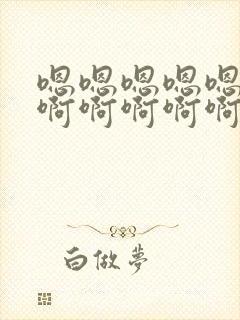 嗯嗯嗯嗯嗯
啊啊啊啊啊
白做梦